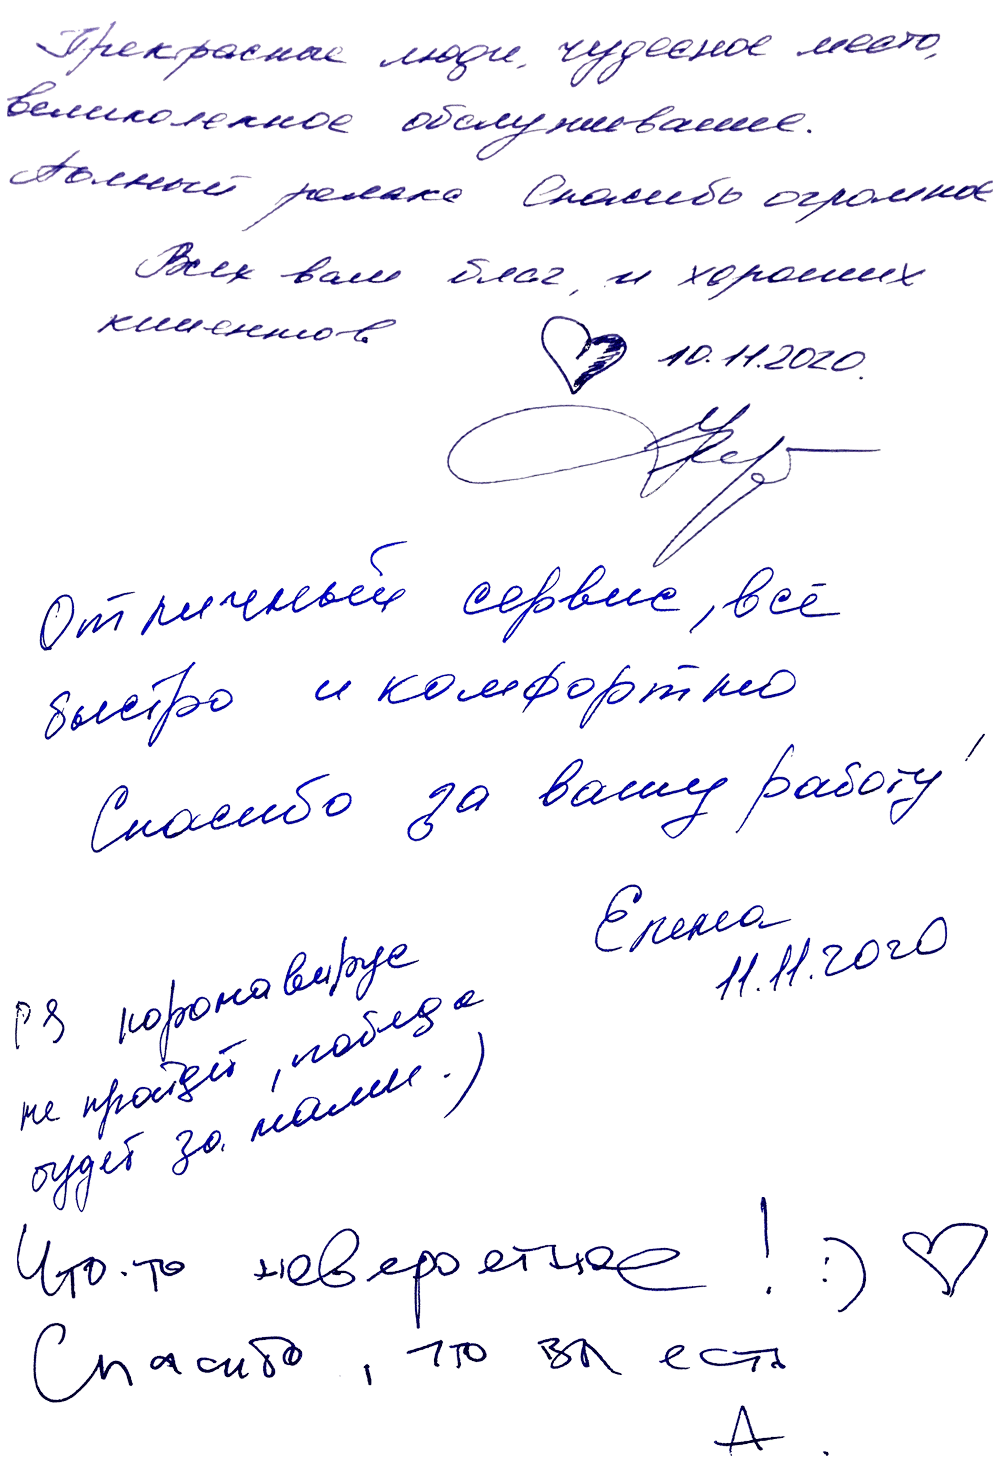 Прекрасные люди, чудесное место,
великолепное обслуживание.
Полный релакс Спасибо огромное
Всех вам благ, и хороших
клиентов
10.11.2020.
Отличный сервис, всё
быстро и комфортно
Спасибо за вашу работу!
Елена
11.11.2020
PS коронавирус
не пройдёт, победа
будет за нами :)
Что-то невероятное! :)
Спасибо, что вы есть
А.